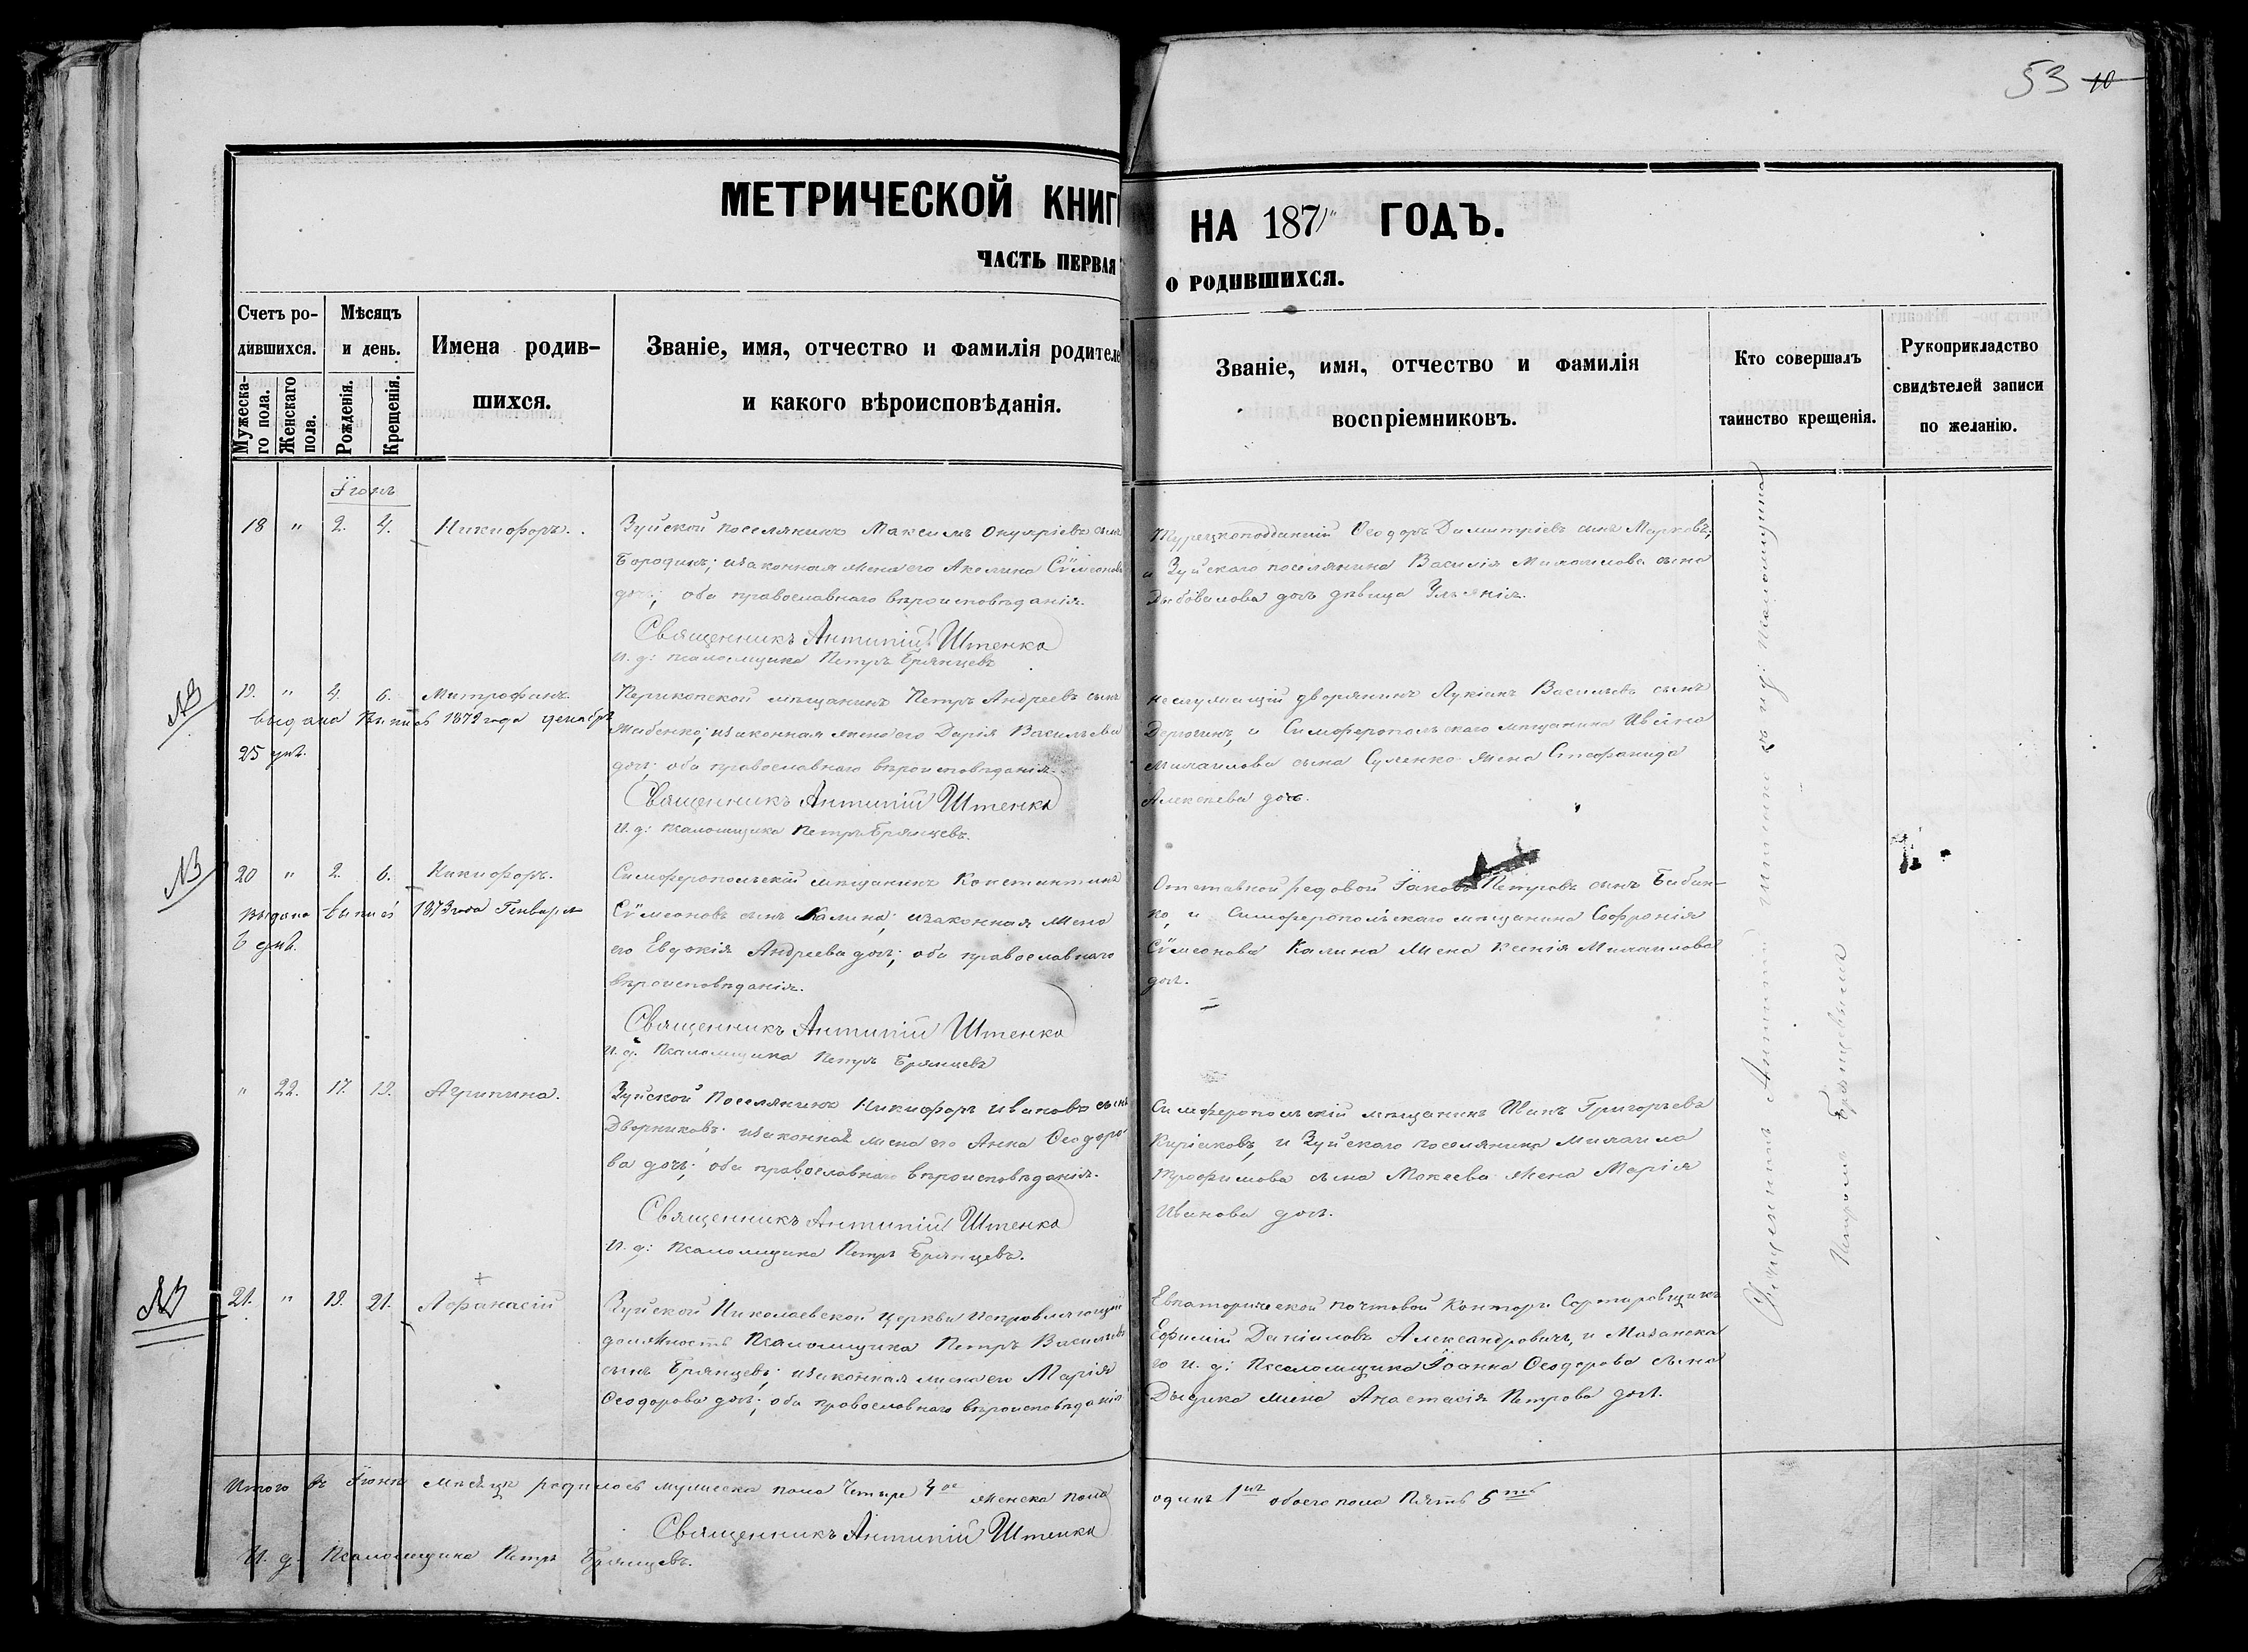 53 10
МЕТРИЧЕСКОЙ КНИГ
НА 187 ГОДЪ.
ЧАСТЬ ПЕРВАЯ
О РОДИВШИХСЯ.
Счетъ ро-
дившихся.
Мужеска-
го пола.
Женскаго
пола.
Мѣсяцъ
и день.
Рожденія.
Крещенія.
Имена родив-
шихся.
Званіе, имя, отчество и фамилія родителе
и какого вѣроисповѣданія.
Званіе, имя, отчество и фамилія
воспріемниковъ.
Кто совершалъ
таинство крещенія.
Рукоприкладство
свидѣтелей записи
по желанію.
18 " 2. 4. Никифоръ.
Зуйской поселянинъ Максимъ Онуфріевъ сынъ
Бородинъ; и законная жена его Акелина Сѵмеонова
доч; оба православнаго вѣроисповѣданія.
Священникъ Антипій Штенко
И. д: псаломщика Петръ Брянцевъ
Турецкоподданный Ѳеодоръ Димитріевъ сынъ Марковъ;
и Зуйскаго поселянина Василія Михаилова сына
доч. дѣвица Ульянія.
NB
19. " 4. 6. Митрофанъ.
выдана выпись 1879 года декабря
25 дня.
Перекопской мѣщанинъ Петръ Андреевъ сынъ
и законная жена его Дарія Васильева
доч; оба православнаго вѣроисповѣданія.
Священникъ Антипій Штенко
И. д: псаломщика Петръ Брянцевъ.
неслужащій дворянинъ Лукіанъ Васильевъ сынъ
Дерюгинъ, и Симферопольскаго мѣщанина Ивана
Михаилова сына Суленко жена Стефанида
Алексеева доч.
NB
20 " 2. 6. Никифоръ.
Выдана выпись 1873 года Генваря
6 дня.
Симферопольскій мѣщанинъ Константинъ
Сѵмеоновъ сынъ Калина; и законная жена
его Евдокія Андреева доч; оба православнаго
вѣроисповѣданія.
Священникъ Антипій Штенко
И. д. Псаломщика Петръ Брянцевъ
Отставной редовой Іаковъ Петровъ сынъ Бабин-
ко, и Симферопольскаго мѣщанина Софронія
Сѵмеонова Калина жена Ксенія Михаилова
доч.
" 22. 17. 19. Агрипина.
Зуйской Поселянинъ Никифоръ Ивановъ сынъ
Дворниковъ. и законная жена его Анна Ѳеодоро-
ва доч; оба православнаго вѣроисповѣданія.
Священникъ Антипій Штенко
И. д: Псаломщика Петръ Брянцевъ.
Симферопольскій мѣщанинъ Иванъ Григорьевъ
Киріаковъ, и Зуйскаго поселянина Михаила
Трофимова сына Мокеева жена Марія
Иванова доч.
NB
21. " 19. 21. Аѳанасій
Зуйской Николаевской Церкви Исправляющій
должность Псаломщика Петръ Васильевъ
сынъ Брянцевъ; и законная жена его Марія
Ѳеодорова доч; оба православнаго вѣроисповѣданія
Евпаторійской почтовой Конторы Сортировщикъ
Ефимій Даніиловъ Александровичъ, и Мазанска
го и. д: Псаломщика Іоанна Ѳеодорова сына
жена Анастасія Петрова доч.
Священникъ Антипій Штенко съ и. д: Псаломщика
Петромъ Брянцевымъ
Итого въ Іюнѣ мѣсяцѣ родилось мужеска пола Четыре 4 женска пола
одинъ 1 обоего пола Пять 5
Священникъ Антипій Штенко
И. д. Псаломщика Петръ Брянцевъ.